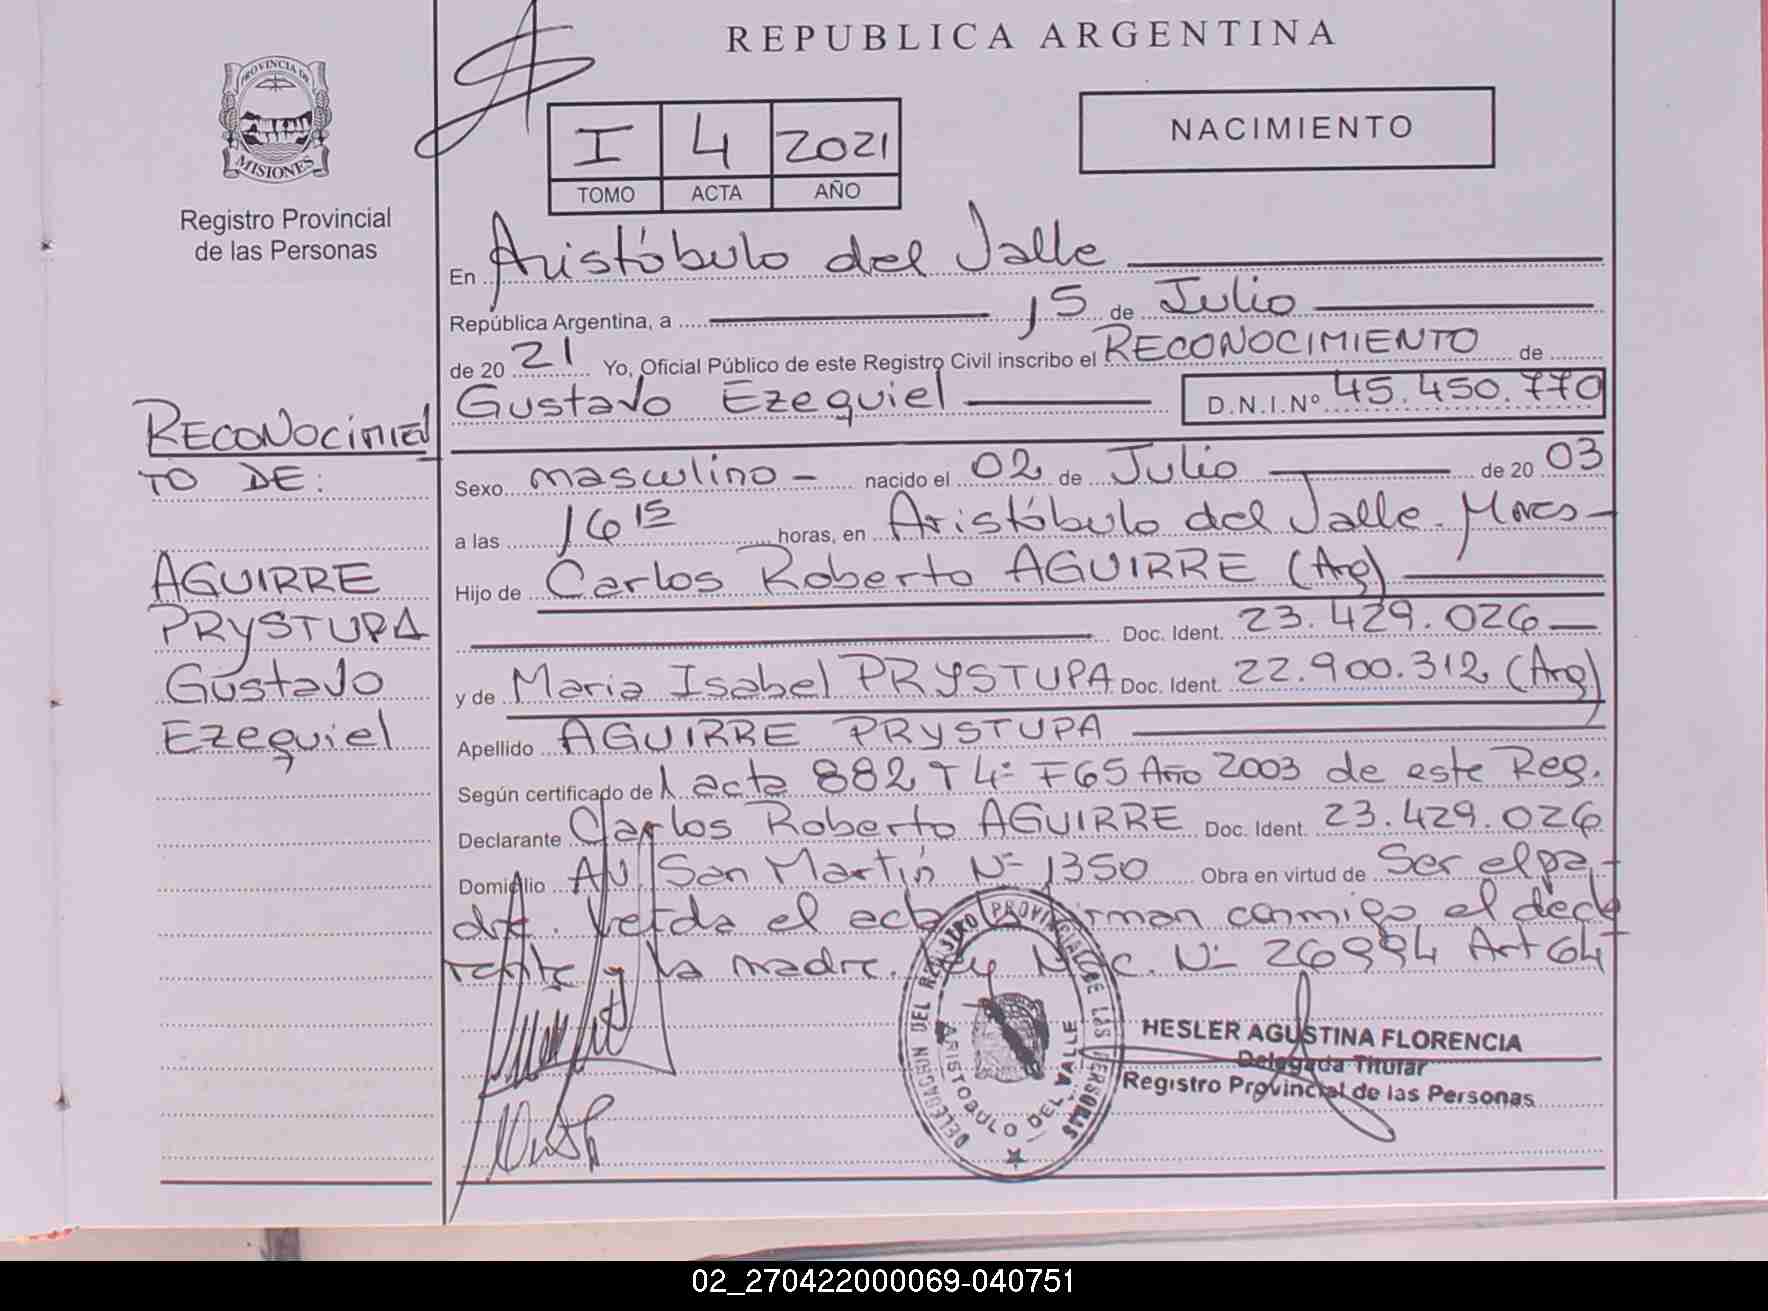 REPUBLICA ARGENTINA
PROVINCIA DE
MISIONES
Registro Provincial
de las Personas
I 4 2021
TOMO ACTA AÑO
NACIMIENTO
En Aristóbulo del Valle
República Argentina, a 15 de Julio
de 2021 Yo, Oficial Público de este Registro Civil inscribo el RECONOCIMIENTO de
Gustavo Ezequiel D.N.I.Nº 45.450.770
Sexo masculino - nacido el 02 de Julio de 2003
a las 16 15 horas, en Aristóbulo del Valle - Mnes -
Hijo de Carlos Roberto AGUIRRE (Arg)
Doc. Ident. 23.429.026
y de Maria Isabel PRYSTUPA Doc. Ident. 22.900.312 (Arg)
Apellido AGUIRRE PRYSTUPA
Según certificado de acta 882 T 4º F65 Año 2003 de este Reg.
Declarante Carlos Roberto AGUIRRE Doc. Ident. 23.429.026
Domicilio AV. San Martín Nº 1350 Obra en virtud de Ser el pa-
dre. Leída el acta la firman conmigo el decla
rante y la madre. Ley Nac. Nº 26994 Art 64
RECONOCIMIEN
TO DE:
AGUIRRE
PRYSTUPA
Gustavo
Ezequiel
DELEGACION DEL REGISTRO PROVINCIAL DE LAS PERSONAS
ARISTOBULO DEL VALLE
HESLER AGUSTINA FLORENCIA
Delegada Titular
Registro Provincial de las Personas
02_270422000069-040751